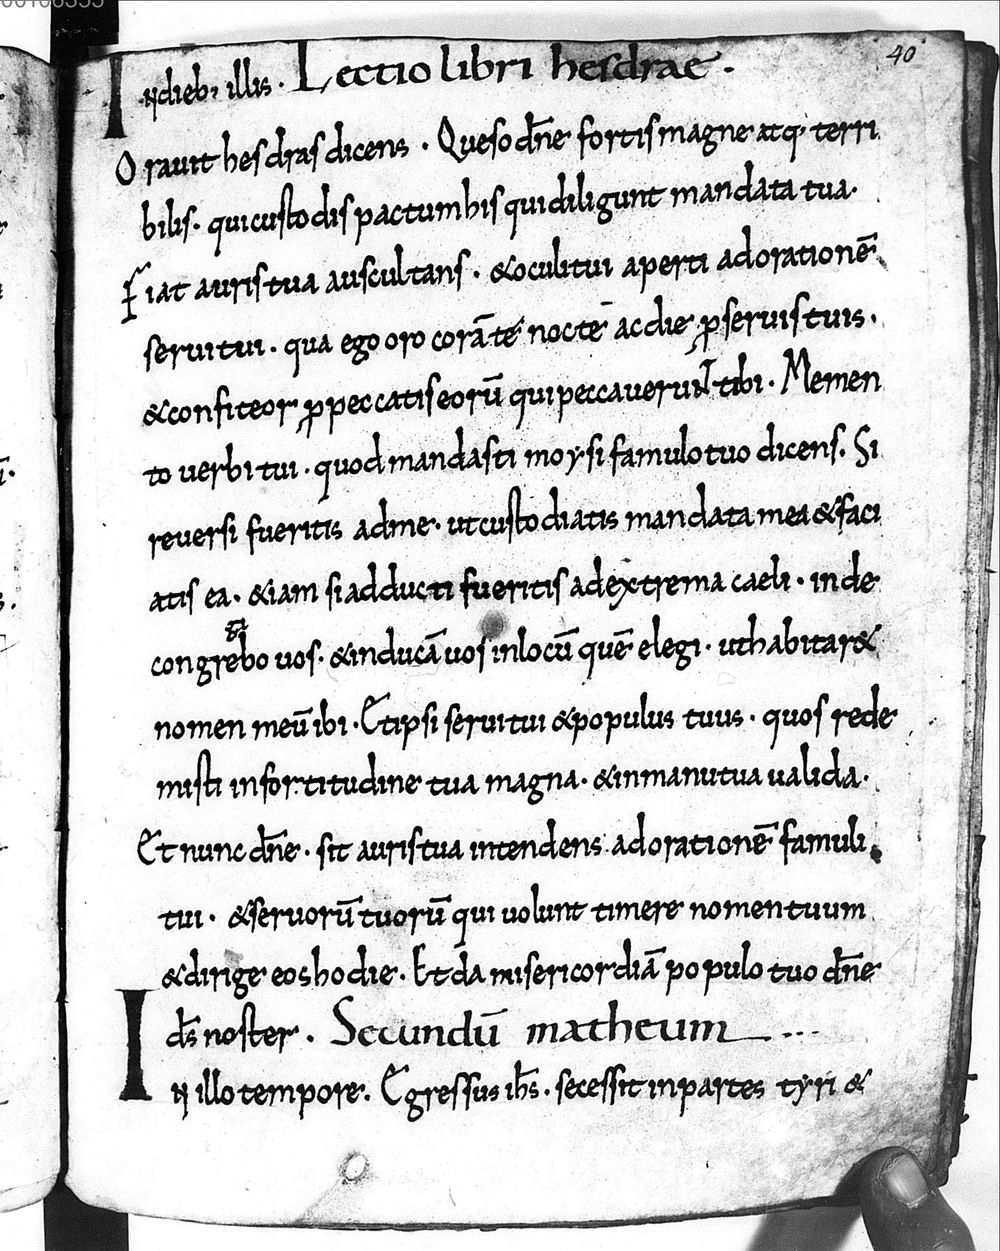 00106355
40
Indieb; illis. Lectio libri hesdrae.
Orauit hesdras dicens. Queso dn̄e fortis magne atq; terri
bilis. qui custodis pactum his qui diligunt mandata tua.
Fiat auris tua auscultans. & oculi tui aperti ad orationē
serui tui. qua ego oro corā te nocte ac die ꝓ seruis tuis.
& confiteor ꝓ peccatis eorū qui peccauerunt tibi. Memen
to uerbi tui. quod mandasti moysi famulo tuo dicens. Si
reuersi fueritis ad me. ut custodiatis mandata mea & faci
atis ea. & iam si adducti fueritis ad extrema caeli. inde
congrebo uos. & inducā uos in locū quē elegi. ut habitar&
nomen meū ibi. Et ipsi serui tui & populus tuus. quos rede
misti in fortitudine tua magna. & in manu tua ualida.
Et nunc dn̄e. sit auris tua intendens ad orationē famuli
tui. & seruorū tuorū qui uolunt timere nomen tuum
& dirige eos hodie. Et da misericordiā populo tuo dn̄e
ds̄ noster. Secundū matheum
In illo tempore. Egressus ih̄s. secessit in partes tyri &